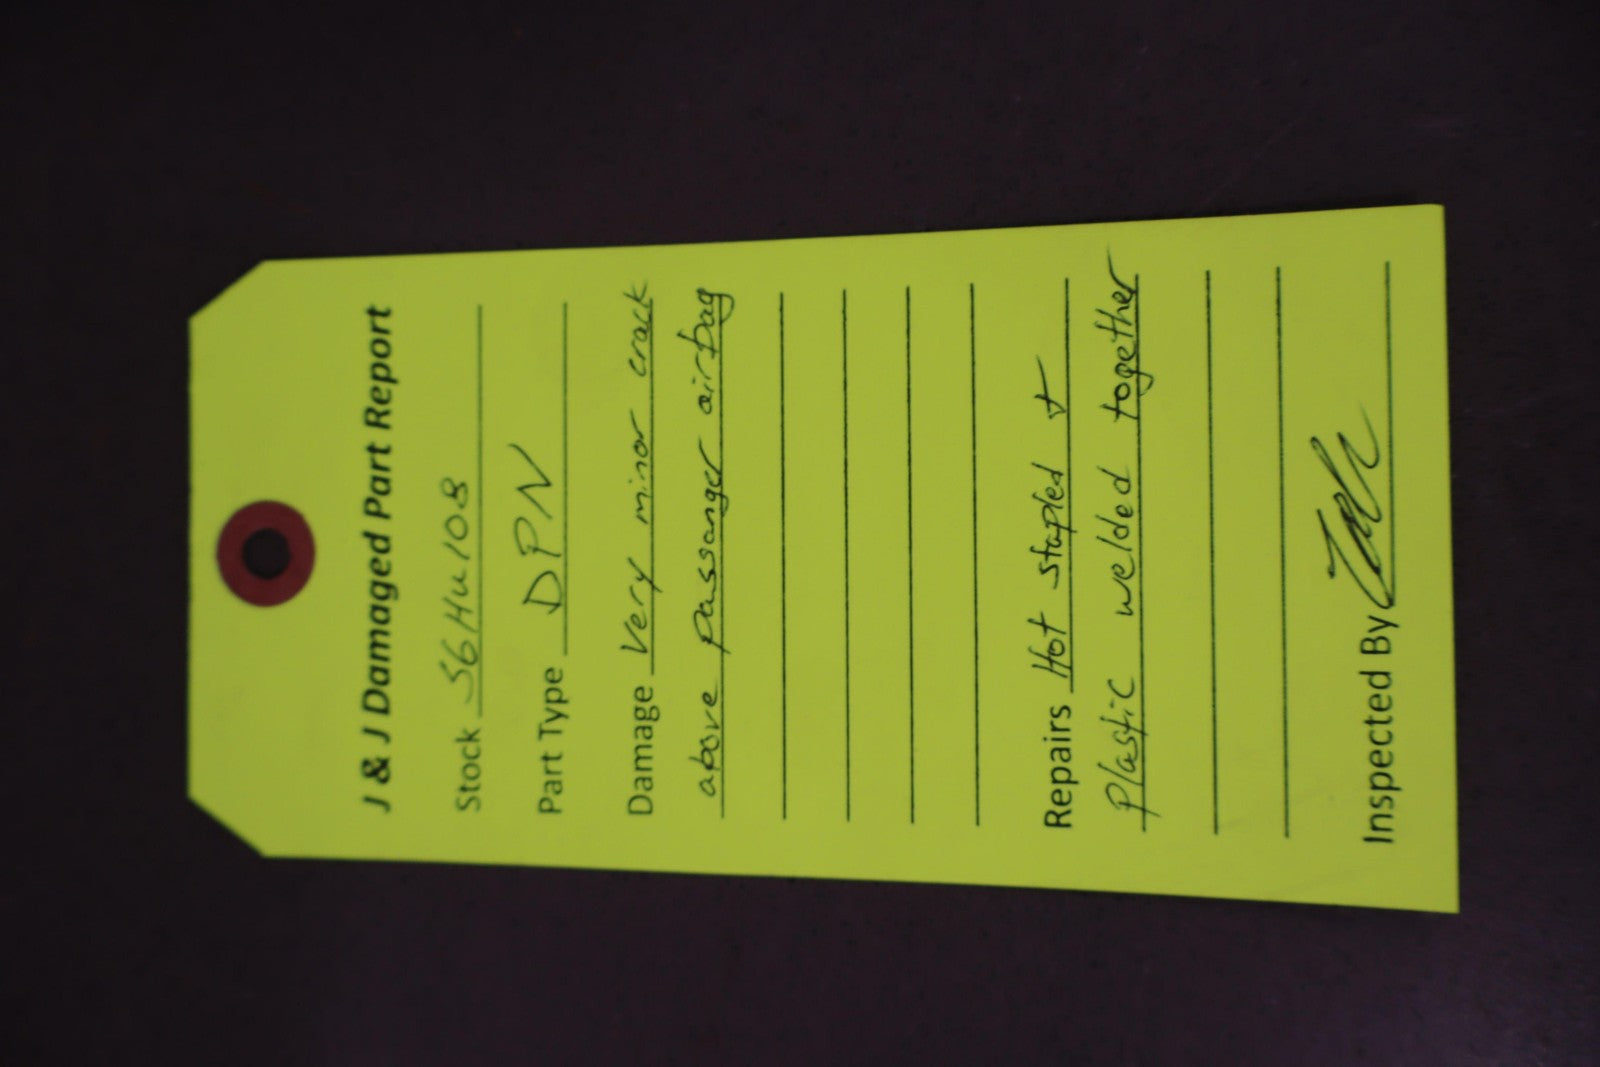 J & J Damaged Part Report
Stock S6Hu108
Part Type DPN
Damage Very minor crack
above passanger airbag
Repairs Hot stapled +
plastic welded together
Inspected By